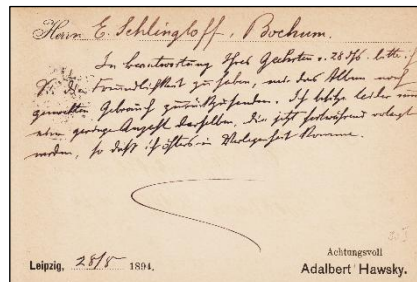 Herrn E. Schlingloff, Bochum.
In Beantwortung Ihres Geehrten v. 26 d/s. bitte ich
Sie die Freundlichkeit zu haben, mir das Album nach
gemachtem Gebrauch zurückzusenden. Ich besitze leider nur
eine geringe Anzahl derselben, die jetzt fortwährend verlangt
werden, so daß ich öfters in Verlegenheit komme.
Leipzig, 28/8 1894.
Achtungsvoll
Adalbert Hawsky.